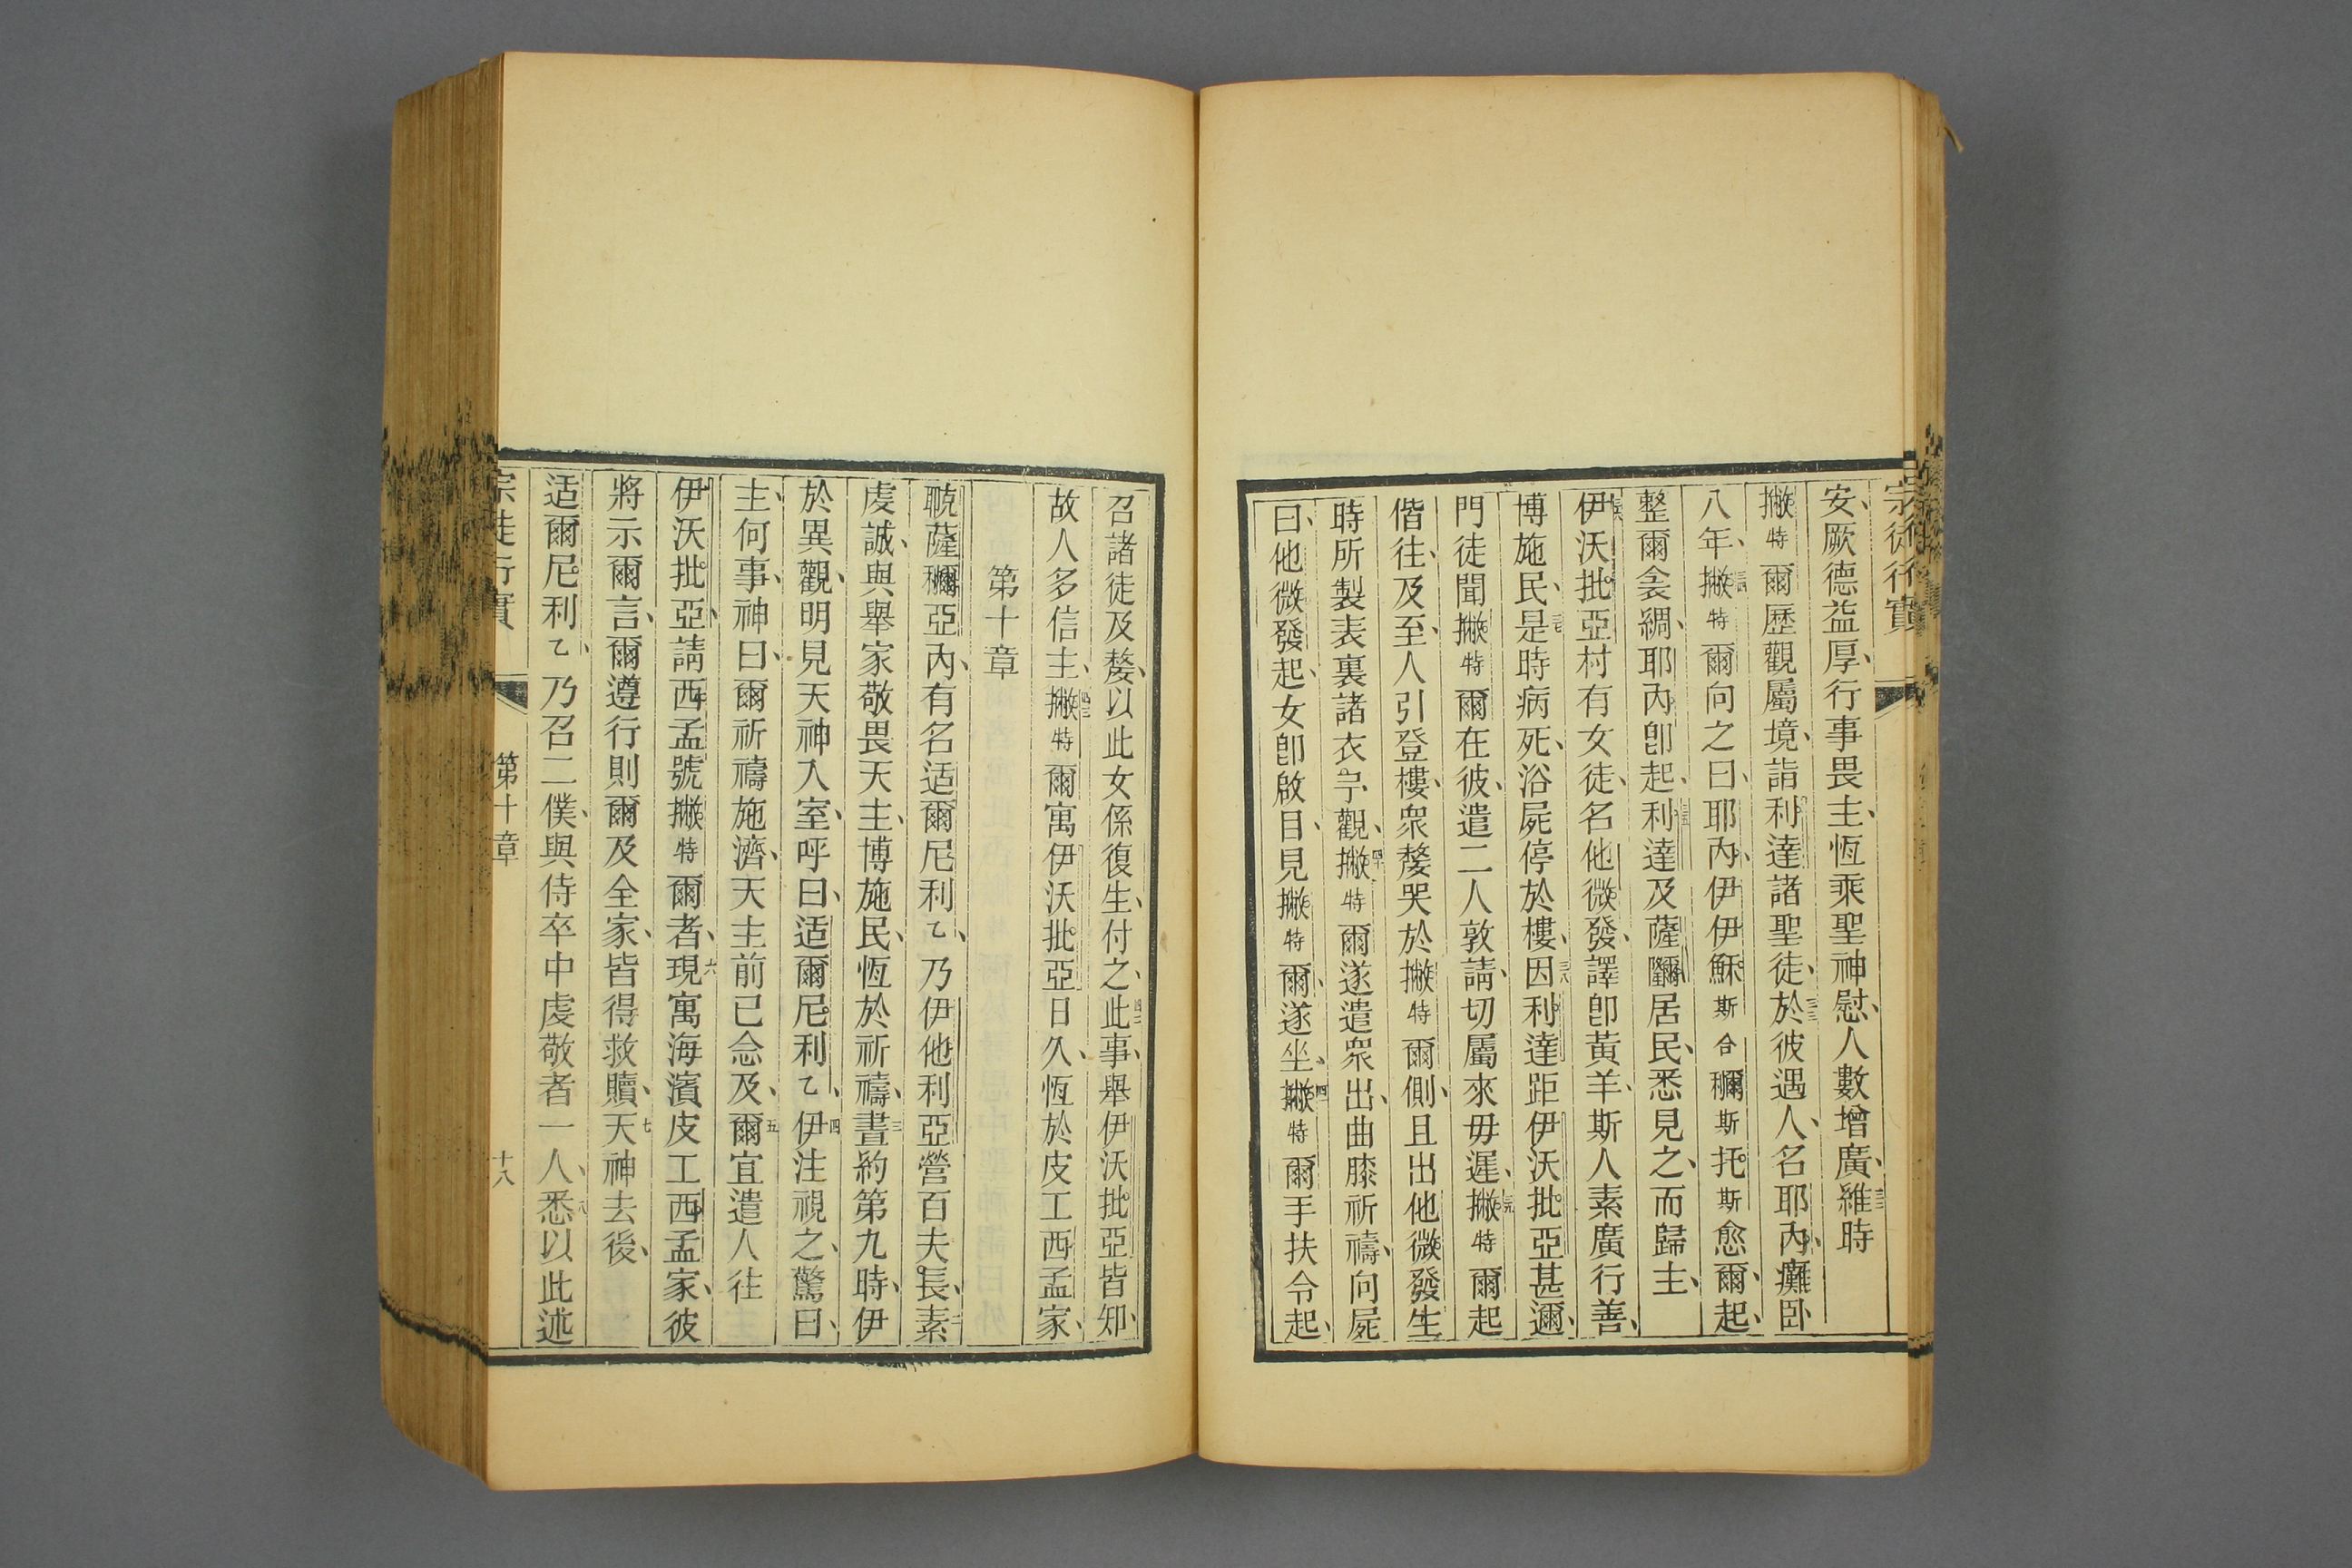 宗徒行實
安、厥德益厚、行事畏主、恆乘聖神慰、人數增廣、三二維時
撇特爾歷觀屬境、詣利達諸聖徒、三三於彼遇人、名耶內、癱卧
八年、三四撇特爾向之曰、耶內、伊伊穌斯合穪斯托斯愈爾、起、
整爾衾綢、耶內卽起、三五利達及薩隬居民、悉見之、而歸主、
三六伊沃批亞村有女徒、名他微發、譯卽黃羊、斯人素廣行善、
博施民、三七是時病死、浴屍停於樓、三八因利達距伊沃批亞甚邇、
門徒聞撇特爾在彼、遣二人敦請、切屬來毋遲、三九撇特爾起
偕往、及至、人引登樓、衆嫠哭於撇特爾側、且出他微發生
時所製表裏諸衣、予觀、四十撇特爾遂遣衆出、曲膝祈禱、向屍
曰、他微發起、女卽啟目、見撇特爾、遂坐、四一撇特爾手扶令起、
召諸徒及嫠、以此女係復生、付之、四二此事、舉伊沃批亞皆知、
故人多信主、四三撇特爾寓伊沃批亞日久、恆於皮工西孟家、
第十章
聝薩穪亞內、有名适爾尼利乙、乃伊他利亞營百夫長、二素
虔誠、與舉家敬畏天主、博施民、恆於祈禱、三晝約第九時、伊
於異觀、明見天神入室、呼曰、适爾尼利乙、四伊注視之、驚曰、
主、何事、神曰、爾祈禱施濟、天主前已念及、五爾宜遣人往
伊沃批亞、請西孟號撇特爾者、六現寓海濱皮工西孟家、彼
將示爾言、爾遵行則爾及全家、皆得救贖、七天神去後、
适爾尼利乙、乃召二僕、與侍卒中虔敬者一人、八悉以此述
宗徒行實 第十章 十八